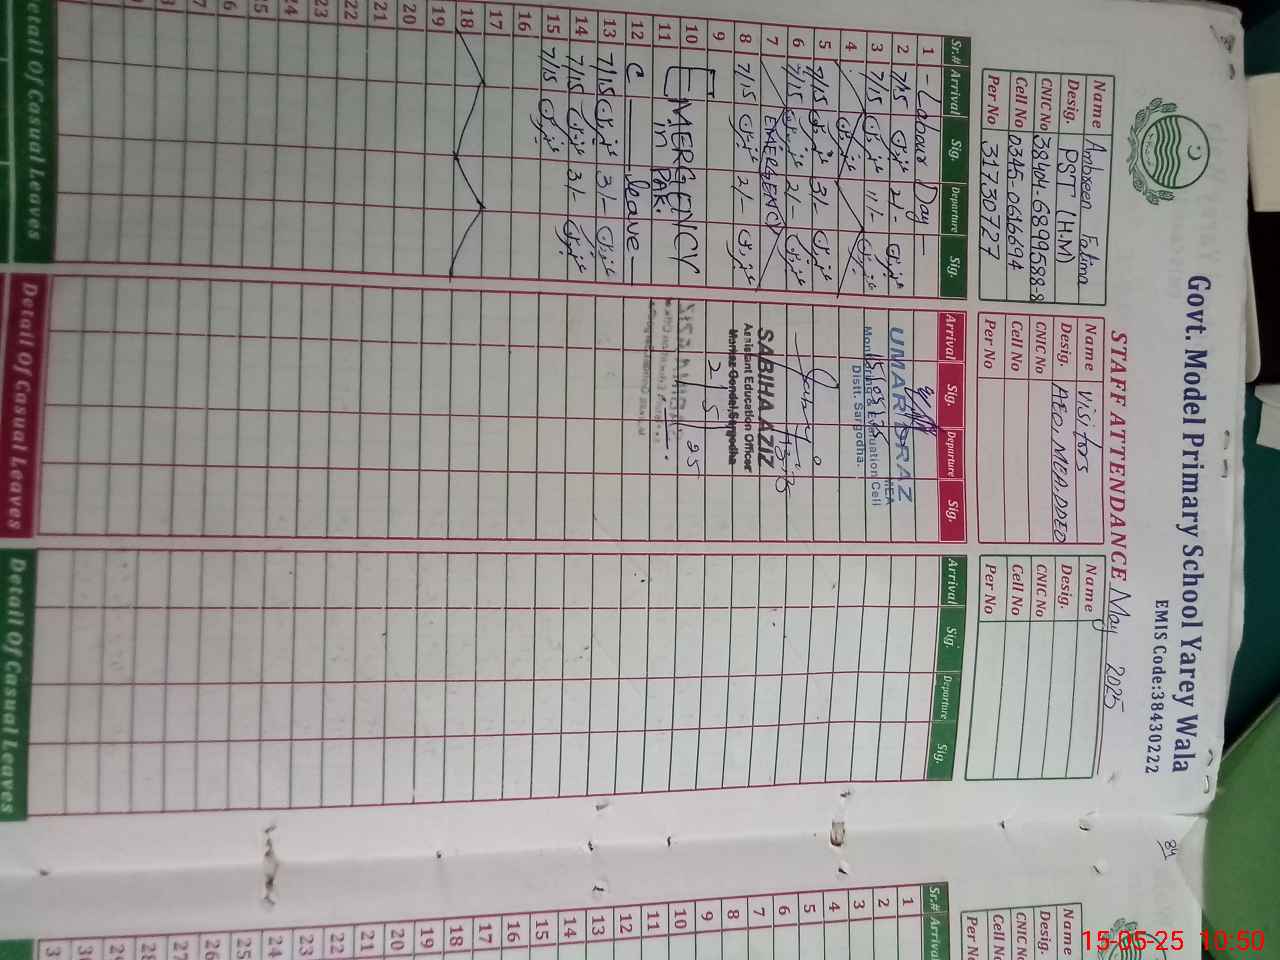 Govt. Model Primary School Yarey Wala
EMIS Code:38430222
STAFF ATTENDANCE May 2025
Name Ambreen Fatima
Desig. PST (H.M)
CNIC No 38404-6899588-8
Cell No 0345-0616694
Per No 31730727
Name Visitors
Desig. AEO, MEA, DDEO
CNIC No
Cell No
Per No
Name
Desig.
CNIC No
Cell No
Per No
Sr.# Arrival Sig. Departure Sig. Arrival Sig. Departure Sig. Arrival Sig. Departure Sig.
1 - Labour Day -
2 7/15 2/-
3 7/15 11/-
4
5 7/15 3/-
6 7/15 2/-
7 EMERGENCY
8 7/15 2/-
9
10 EMERGENCY
11 in PAK.
12 C leave
13 7/15 3/-
14 7/15 3/-
15 7/15
16
17
18
19
20
21
22
23
24
UMAR DRAZ
MEA
Monitoring & Evaluation Cell
Distt. Sargodha.
SABIHA AZIZ
Assistant Education Officer
Sargodha
2/5/25
Detail Of Casual Leaves
Detail Of Casual Leaves
Detail Of Casual Leaves
84
Name
Desig.
CNIC No
Cell No
Per No
Sr.# Arrival
1
2
3
4
5
6
7
8
9
10
11
12
13
14
15
16
17
18
19
20
21
22
23
24
25
26
27
28
29
15-05-25 10:50